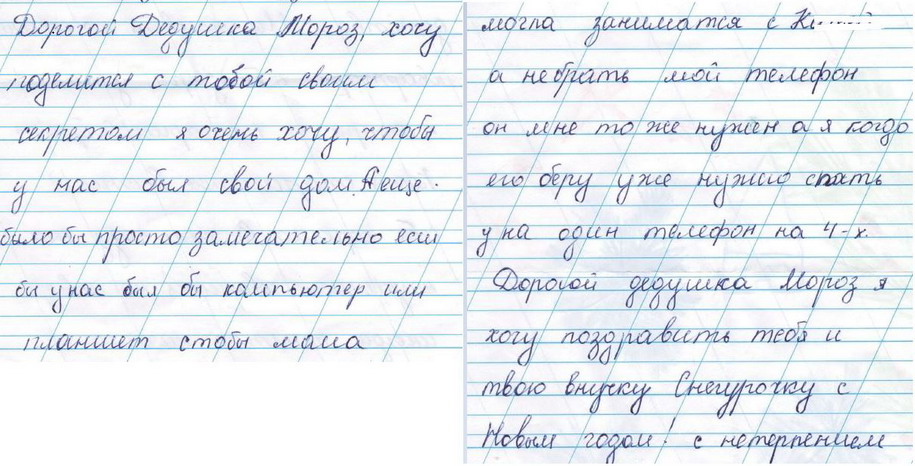 Дорогой Дедушка Мороз, хочу
поделится с тобой своим
секретом я очень хочу, чтобы
у нас был свой дом. А еще
было бы просто замечательно если
бы у нас был бы компьютер или
планшет стобы мама
могла заниматся с
а не брать мой телефон
он мне то же нужен а я когдо
его беру уже нужно спать
у на один телефон на 4-х.
Дорогой дедушка Мороз я
хочу поздравить тебя и
твою внучку Снегурочку с
Новым годом! с нетерпением